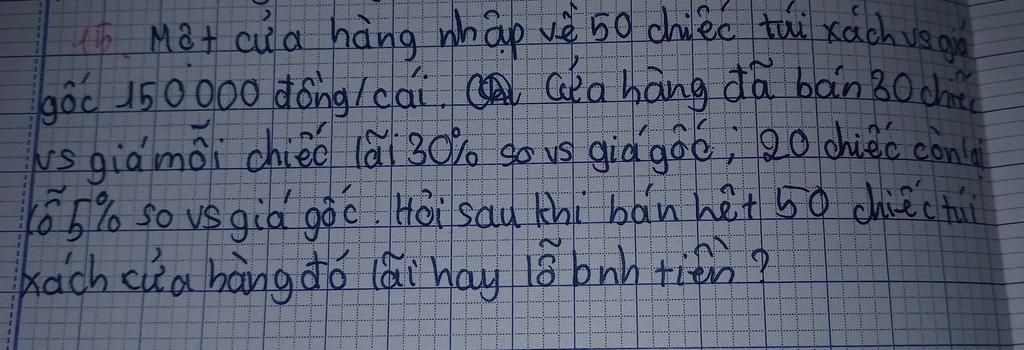 15. Một cửa hàng nhập về 50 chiếc túi xách vs giá
gốc 150000 đồng/cái. Cửa hàng đã bán 30 chiếc
vs giá mỗi chiếc lãi 30% so vs giá gốc; 20 chiếc còn lại
lỗ 5% so vs giá gốc. Hỏi sau khi bán hết 50 chiếc túi
xách cửa hàng đó lãi hay lỗ bnh tiền?